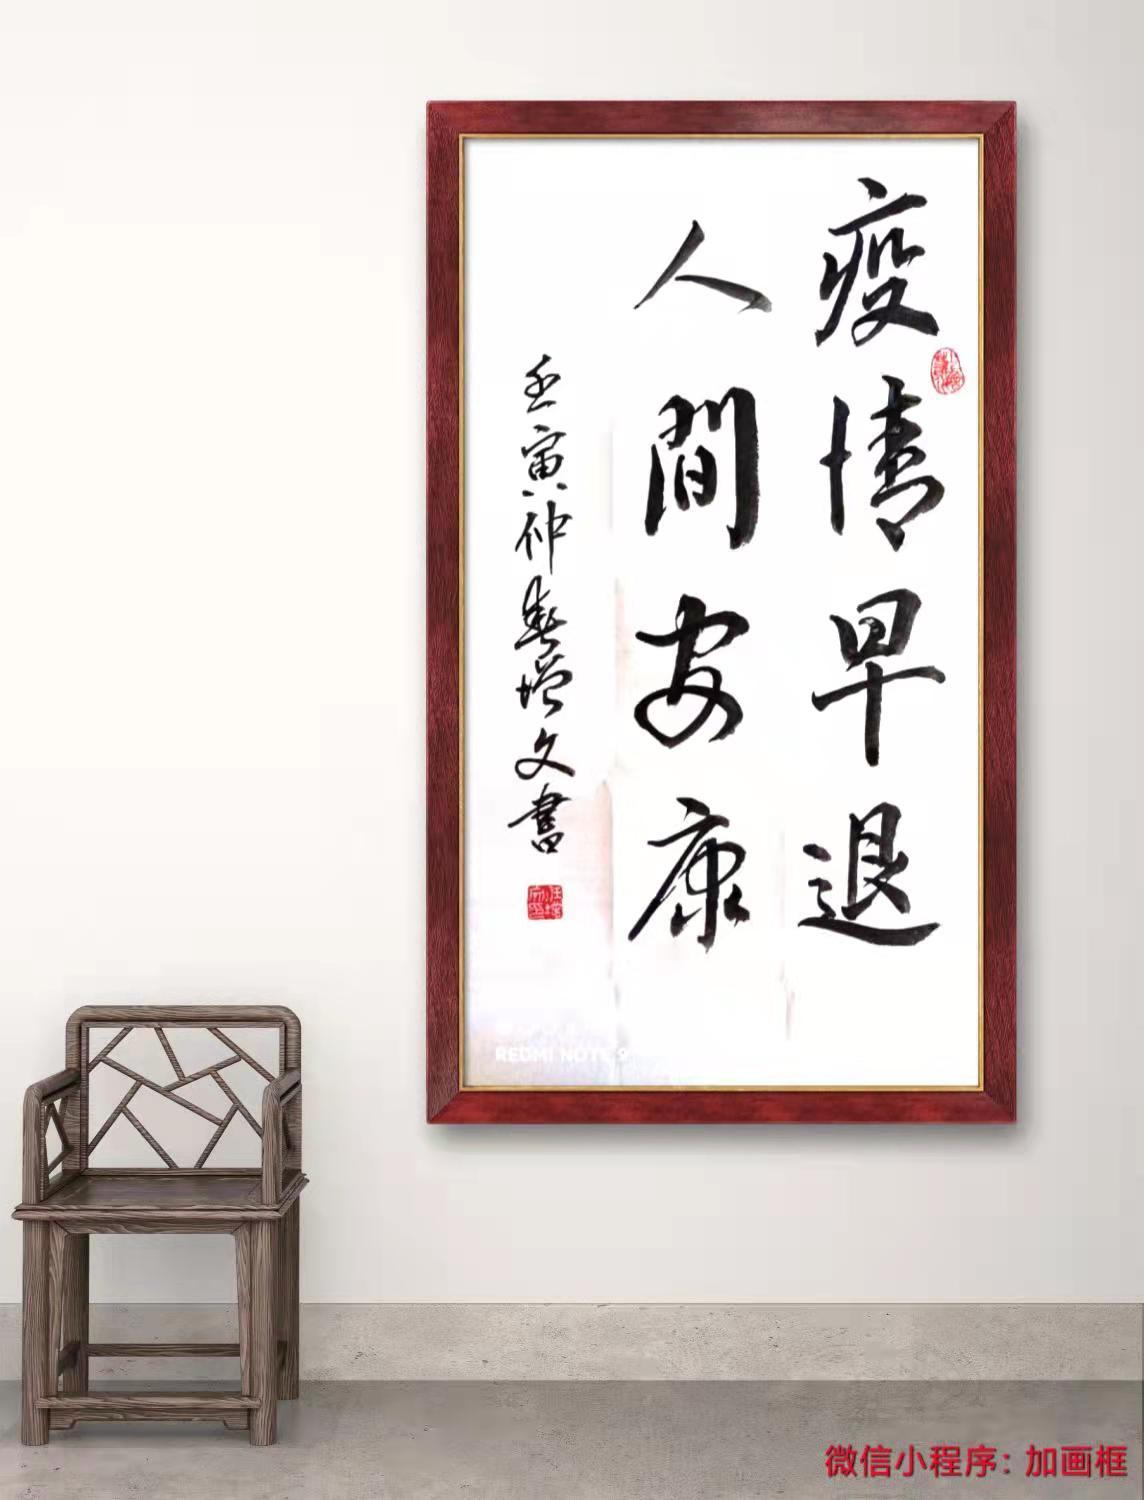 疫情早退
人間安康
壬寅仲春增文書
REDMI NOTE 9
微信小程序：加画框